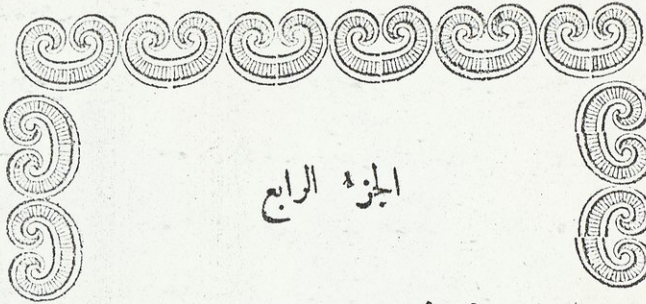 الجزء الرابع